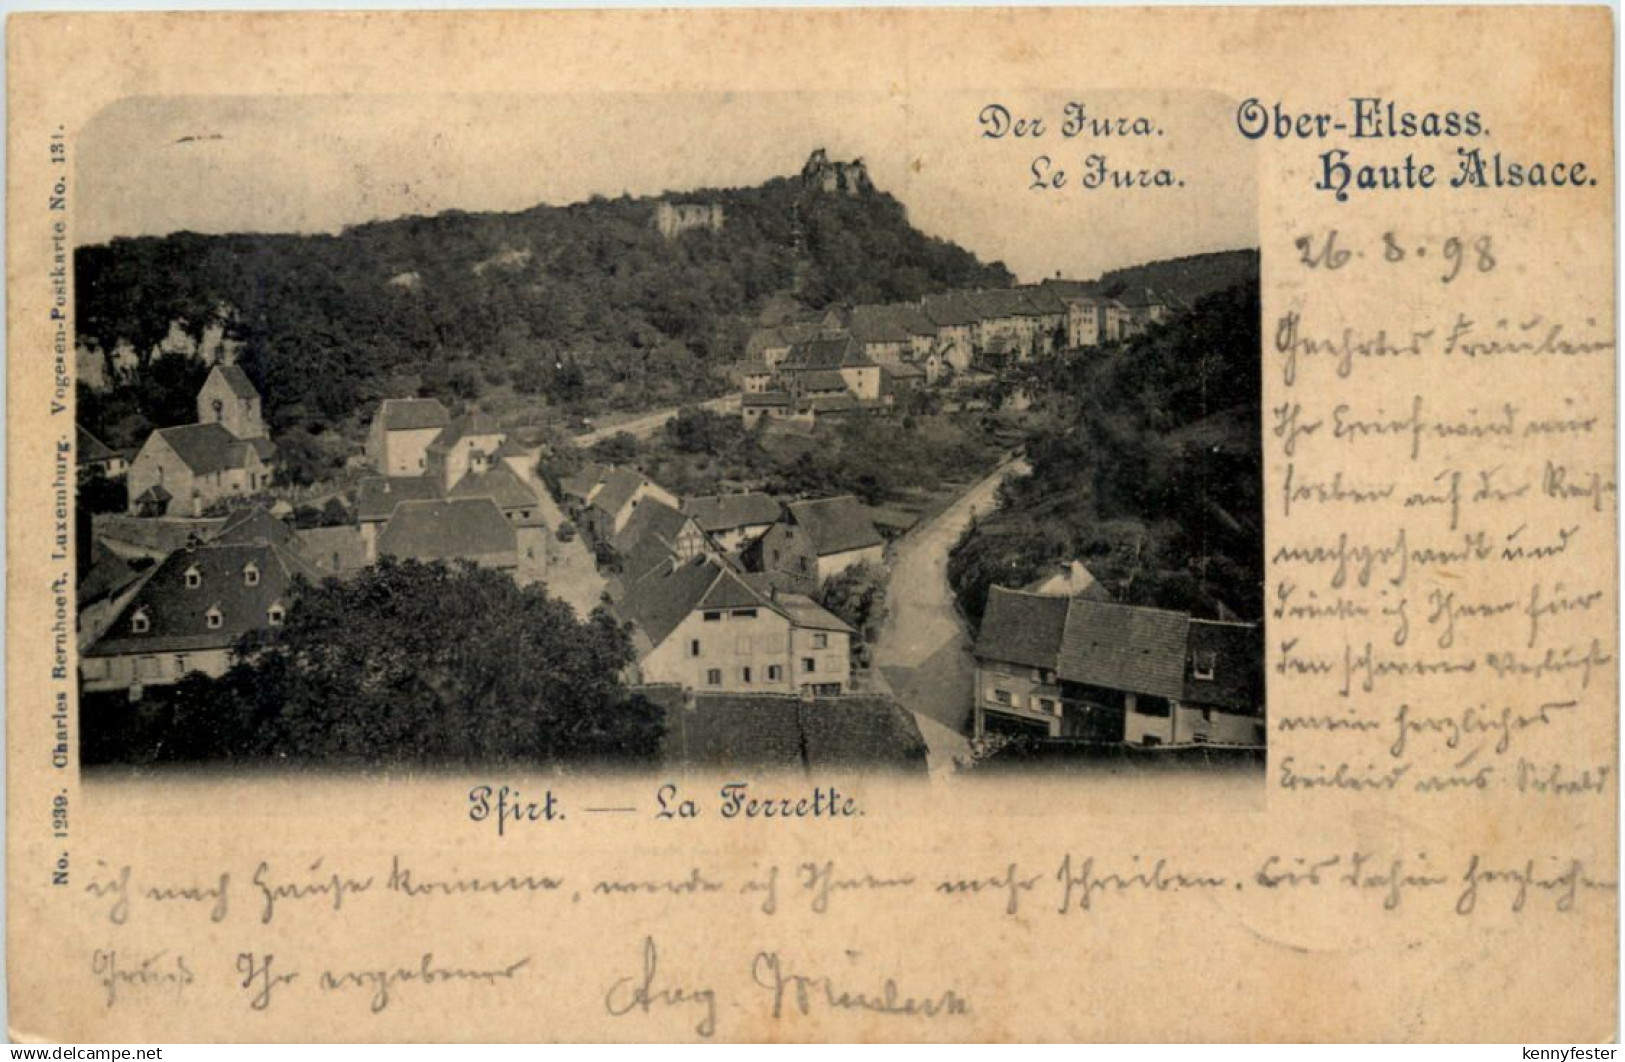 Der Jura. Ober-Elsass.
Le Jura. Haute Alsace.
26.8.98
Geehrtes Fräulein
Ihr Brief wird mir
soeben auf der Reise
nachgesandt und
drücke ich Ihnen für
den schweren Verlust
mein herzliches
Beileid aus. Sobald
ich nach Hause komme, werde ich Ihnen mehr schreiben. Bis dahin herzlichen
Gruß Ihr ergebener Aug.
Pfirt. — La Ferrette.
No. 1239. Charles Bernhoeft, Luxemburg. Vogesen-Postkarte No. 131.
delcampe.net
kennyfester